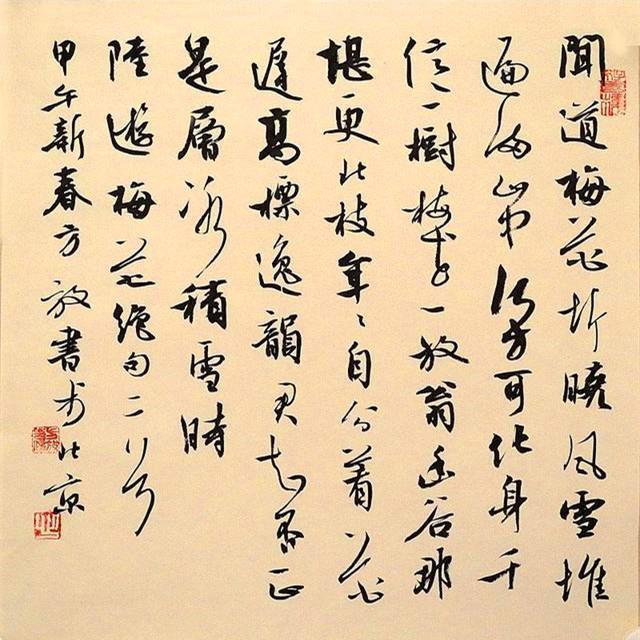 聞道梅花坼曉風雪堆
遍滿山中何方可化身千
億一樹梅前一放翁幽谷那
堪更北枝年〻自分着花
遲高標逸韻君知否正
是層冰積雪時
陸遊梅花絕句二首
甲午新春方放書於北京